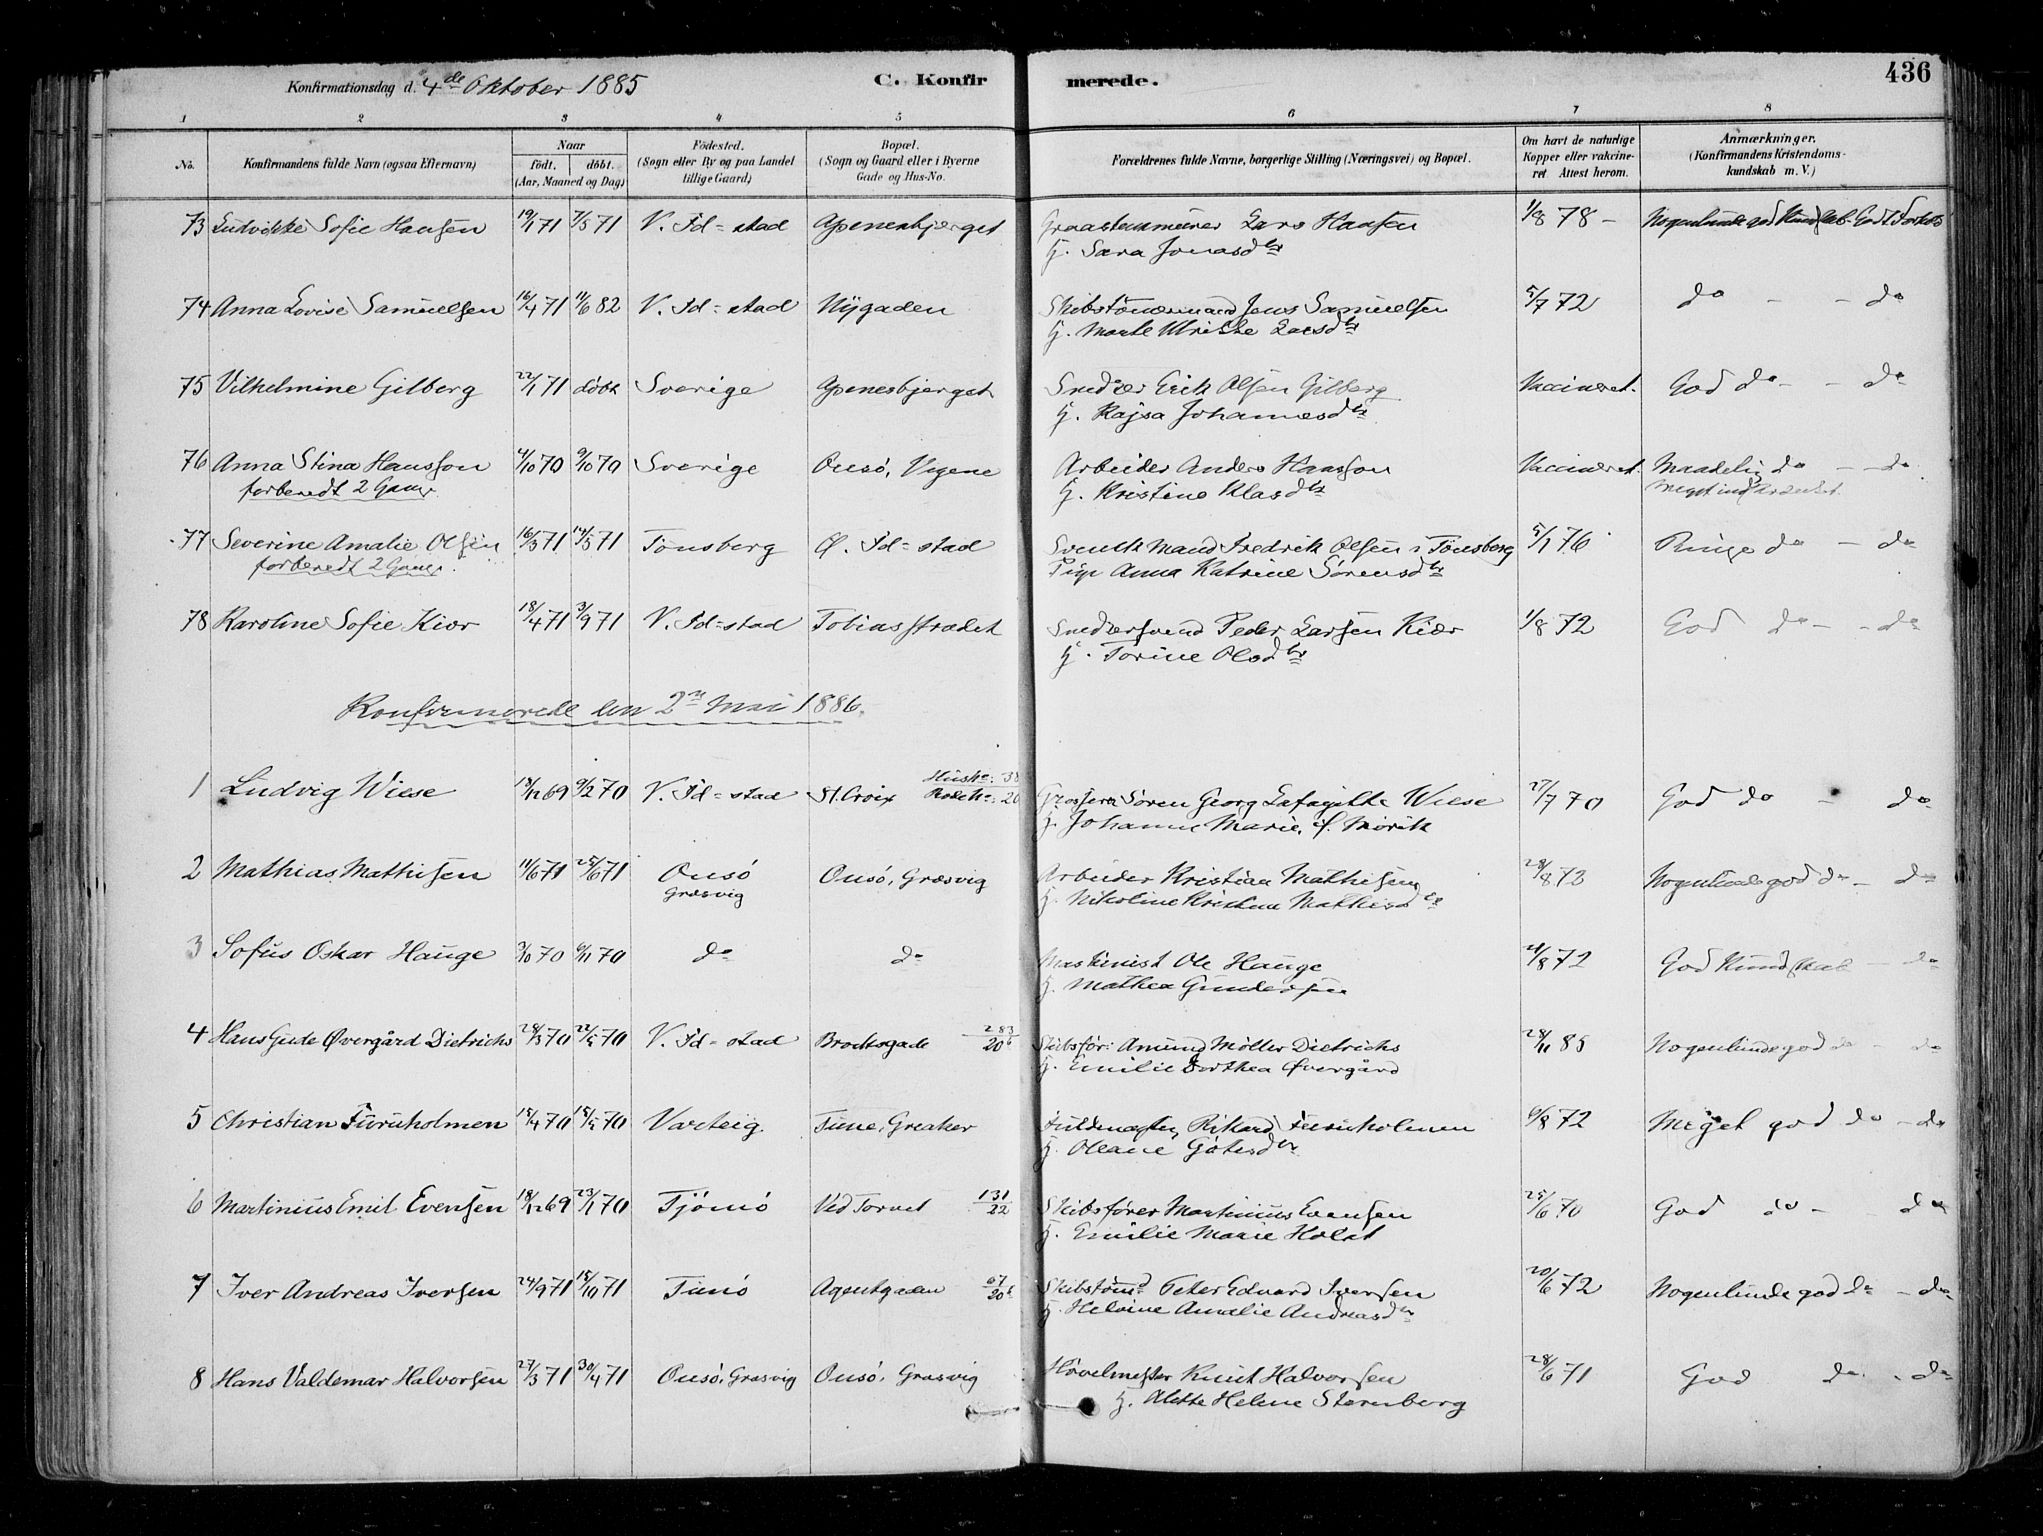 Konfirmationsdag d. 4de Oktober 1885
C. Konfirmerede.
436
1 2 3 4 5 6 7 8
No.
Konfirmandens fulde Navn (ogsaa Efternavn)
Naar
født. døbt.
(Aar, Maaned og Dag)
Fødested.
(Sogn eller By og paa Landet
tillige Gaard)
Bopæl.
(Sogn og Gaard eller i Byerne
Gade og Hus-No.
Forældrenes fulde Navne, borgerlige Stilling (Næringsvei) og Bopæl.
Om havt de naturlige
Kopper eller vakcine-
ret. Attest herom.
Anmærkninger.
(Konfirmandens Kristendoms-
kundskab m. V.)
73 Ludvikke Sofie Hansen 19/1 71 7/5 71 V. Fd=stad Apenesbjerget Graastensmurer Lars Hansen 1/8 78 - Nogenlunde god Kundskab - Godt Forhold
H. Sara Jonasdtr
74 Anna Lovise Samuelsen 16/4 71 11/6 82 V. Fd=stad Nygaden Skibstømermand Jens Samuelsen 5/7 72 do - - do
H. Marte Ulrikke Larsdtr
75 Vilhelmine Gilberg 22/1 71 døbt Sverige Apenesbjerget Snedker Erik Olsen Gilberg Vaccineret. God do - - do
H. Kajsa Johannesdtr
76 Anna Stina Hansson 4/10 70 9/10 70 Sverige Onsø, Vigene Arbeider Anders Hansson Vaccineret. Maadelig do - - do
forberedt 2 Gange H. Kristine Klasdtr Meget indskrænket
77 Severine Amalie Olsen 16/3 71 14/5 71 Tønsberg Ø. Fd=stad Svensk Mand Fredrik Olsen i Tønsberg 5/1 76 Ringe do - do
forberedt 2 Gange. Pige Anna Katrine Sørensdtr
78 Karoline Sofie Kiær 18/4 71 3/9 71 V. Fd=stad Tobiasstrædet Snedkersvend Peder Larsen Kiær 1/8 72 God do - - do
H. Torine Olsdtr
Konfirmerede den 2n Mai 1886.
1 Ludvig Wiese 18/12 69 9/2 70 V. Fd=stad St. Croix Grosserer Søren Georg Lafayette Wiese 27/7 70 God do - do
H. Johanne Marie, f. Mørik
2 Mathias Mathisen 11/6 71 25/6 71 Onsø Onsø, Græsvig Arbeider Kristian Mathisen 28/8 73 Nogenlunde god do - do
Græsvig H. Nikoline Kristine Mathisdtr
3 Sofus Oskar Hauge 3/10 70 6/11 70 do do Maskinist Ole Hauge 21/8 72 God Kundskab - do
H. Mathea Gundersen
4 Hans Gude Øvergård Dietrichs 28/3 70 22/5 70 V. Fd=stad Brochsgade 283/20b Skibsfør: Amund Møller Dietrichs 28/11 85 Nogenlunde god do - do
H. Emilie Dorthea Øvergård
5 Christian Furuholmen 15/4 70 15/5 70 Varteig. Tune, Greaker Fuldmægtig Rikard Furuholmen 6/8 72 Meget god do - do
H. Oleane Gjøtesdtr
6 Martinius Emil Evensen 18/12 69 23/1 70 Tjømø Ved Torvet 131/22 Skibsfører Martinius Evensen 25/6 70 God do - do
H. Emilie Marie Holst
7 Iver Andreas Iversen 24/9 71 15/10 71 Tunø Agentgaden 67/20b Skibstømd Peter Edvard Iversen 20/6 72 Nogenlunde god do - do
H. Helvine Amalie Andreasdtr
8 Hans Valdemar Halvorsen 27/3 71 30/4 71 Onsø, Græsvig Onsø, Græsvig Høvelmester Knut Halvorsen 28/6 71 God do - do
H. Alette Helene Sternberg